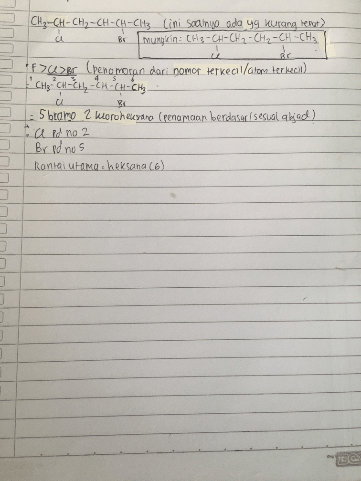 CH3-CH-CH2-CH-CH-CH3 (ini soalnya ada yg kurang tepat)
Cl Br mungkin: CH3-CH-CH2-CH2-CH-CH3
Cl Br
*F>Cl>Br (penomoran dari nomor terkecil/atom terkecil)
1 2 3 4 5 6
: CH3-CH-CH2-CH-CH-CH3
Cl Br
= 5 bromo 2 kloroheksana (penamaan berdasar/sesuai abjad)
= Cl pd no 2
Br pd no 5
Rantai utama = heksana (6)